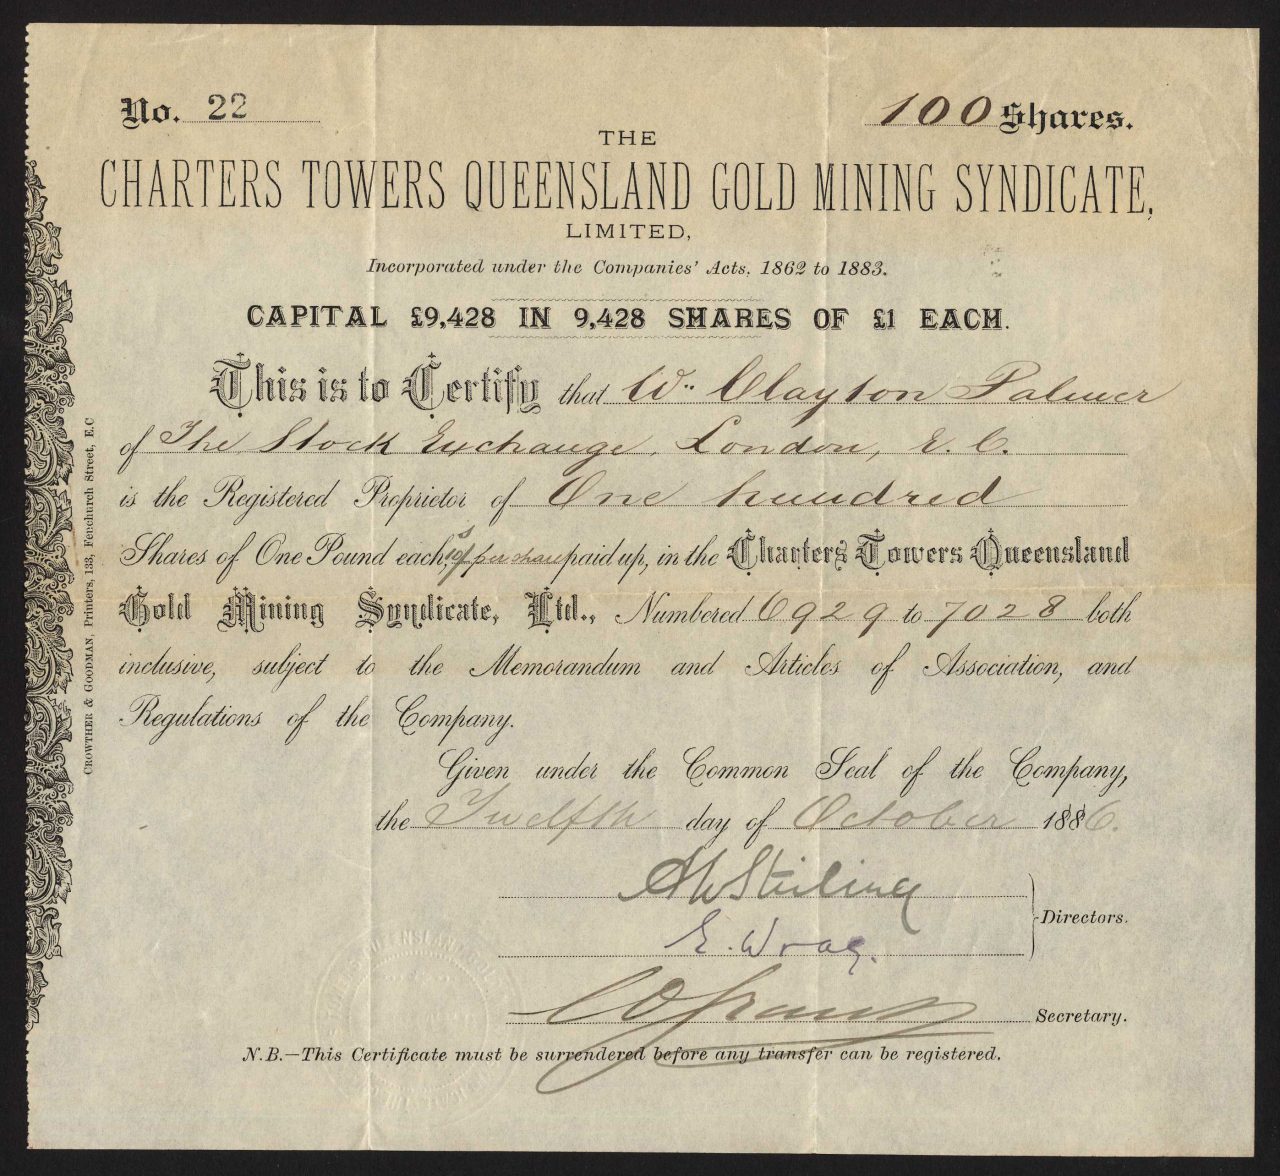 No. 22
100 Shares.
THE
CHARTERS TOWERS QUEENSLAND GOLD MINING SYNDICATE,
LIMITED,
Incorporated under the Companies' Acts, 1862 to 1883.
CAPITAL £9,428 IN 9,428 SHARES OF £1 EACH.
This is to Certify that W. Clayton Palmer
of The Stock Exchange, London, E. C.
is the Registered Proprietor of One hundred
Shares of One Pound each, 10/ per share paid up, in the Charters Towers Queensland
Gold Mining Syndicate, Ltd., Numbered 6929 to 7028 both
inclusive, subject to the Memorandum and Articles of Association, and
Regulations of the Company.
Given under the Common Seal of the Company,
the Twelfth day of October 1886.
AW Stirling
E. Wrag.
Directors.
Secretary.
N.B.—This Certificate must be surrendered before any transfer can be registered.
CROWTHER & GOODMAN, Printers, 133, Fenchurch Street, E.C